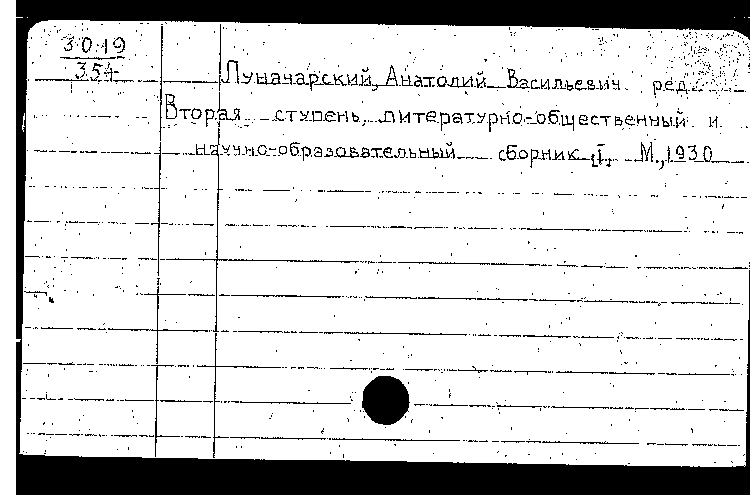 30.19
354
Луначарский, Анатолий Васильевич ред.
Вторая ступень, литературно-общественный и
научно-образовательный сборник, I, М., 1930